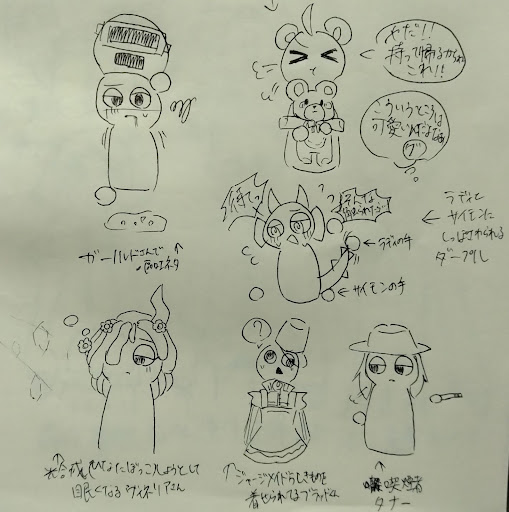 やだ!!
持って帰るからね
これ!!
こういうところは
可愛いんだよなぁ
待てっ
そんな
ラディと
サイモンに
しっぽさわられる
ダープル
←ラディの手
←サイモンの手
ガールドさんで
↑
?
ひなたぼっこしようとして
眠くなるヴィネリアさん
↑ジャージメイドらしきものを
着せられてるブラッドん
↑
喫煙者
タナー